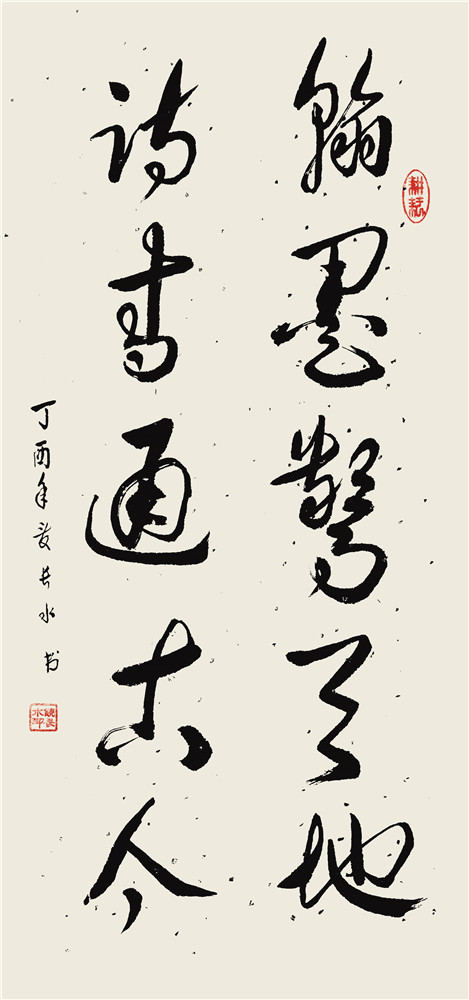 翰墨惊天地
诗书通古今
丁酉年
长水书
耕耘